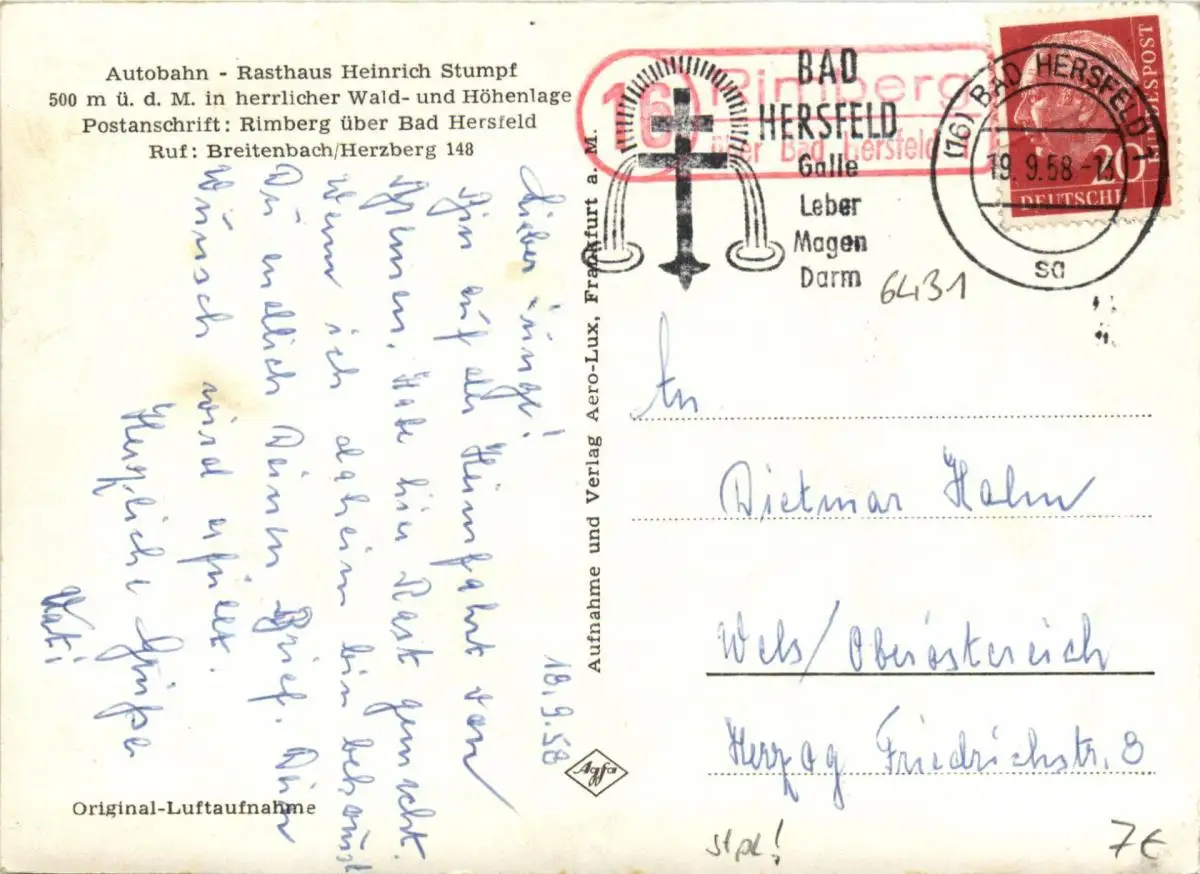 Autobahn - Rasthaus Heinrich Stumpf
500 m ü. d. M. in herrlicher Wald- und Höhenlage
Postanschrift: Rimberg über Bad Hersfeld
Ruf: Breitenbach/Herzberg 148
18.9.58
Lieber Junge!
Bin auf der Heimfahrt von
Habe hier Rast gemacht.
Wenn ich daheim bin bekommst
Du endlich Deinen Brief. Dein
Wunsch wird erfüllt.
Herzliche Grüße
Vati
Original-Luftaufnahme
Aufnahme und Verlag Aero-Lux, Frankfurt a. M.
Agfa
16
Rimberg
über Bad Hersfeld
BAD
HERSFELD
Galle
Leber
Magen
Darm
(16) BAD HERSFELD 1
19.9.58-13
sa
DEUTSCHE BUNDESPOST
20
6431
An
Dietmar Hahn
Wels/Oberösterreich
Herzog Friedrichstr. 8
stpl!
7€